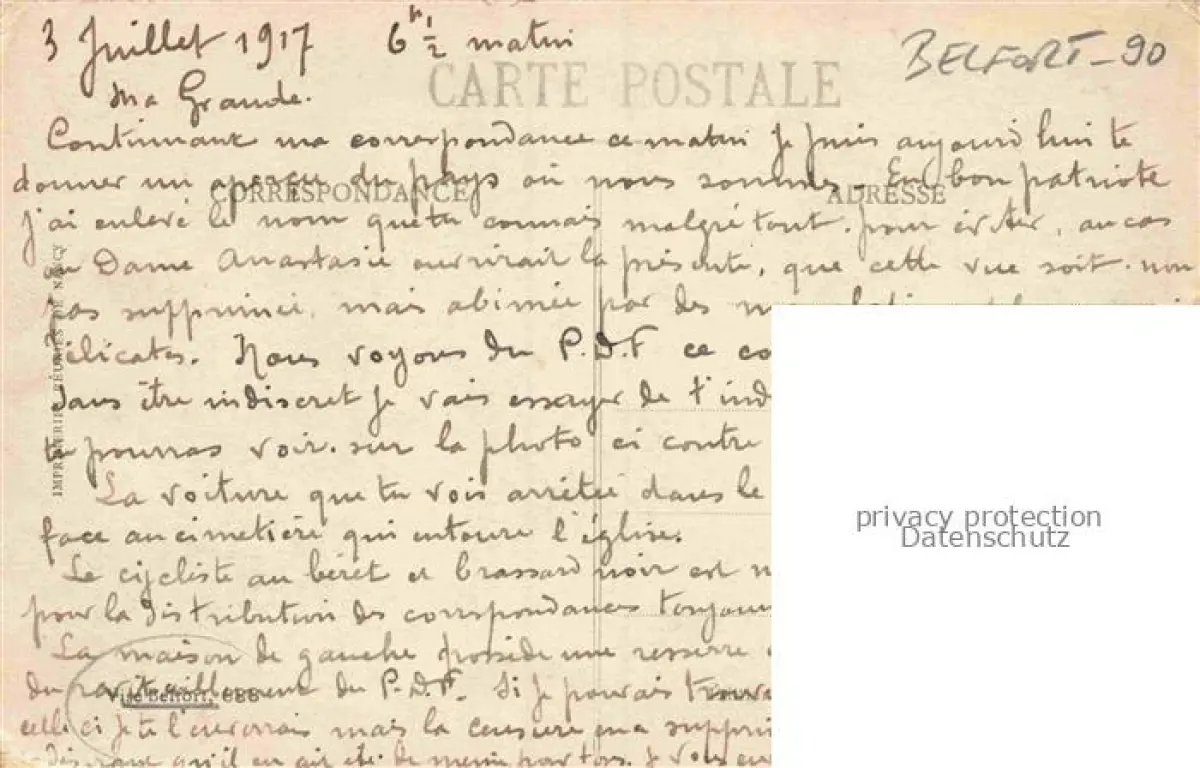 3 Juillet 1917 6h 1/2 matin
BELFORT-90
CARTE POSTALE
Ma Grande.
Continuant ma correspondance ce matin je puis aujourd'hui te
donner un aperçu du pays où nous sommes - En bon patriote
CORRESPONDANCE
ADRESSE
j'ai enlevé le nom que tu connais malgré tout. pour éviter, au cas
où Dame Anastasie ouvrirait la présente, que cette vue soit non
pas supprimée, mais abimée par des
délicates. Nous voyons du P.D.F ce
Sans être indiscret je vais essayer de t'ind
tu pourras voir sur la photo ci contre
La voiture que tu vois arrêtée dans le
face au cimetière qui entoure l'église.
Le cycliste au béret et brassard noir est
pour la distribution des correspondances toujours
La maison de gauche possède une resserre
du ravitaillement du P.D.F. Si je pouvais trouver
Visé Belfort, 688
celle ci je te l'enverrais mais la censure en a supprimé
qu'il en ait été de même pour tous. Je vous
IMPRIMERIES RÉUNIES DE NANCY
privacy protection
Datenschutz